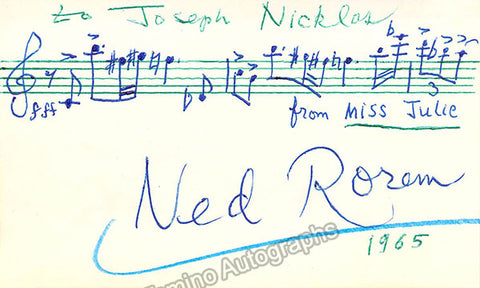 to Joseph Nicklas
fff
3
from Miss Julie
Ned Rorem
1965
Tamino Autographs